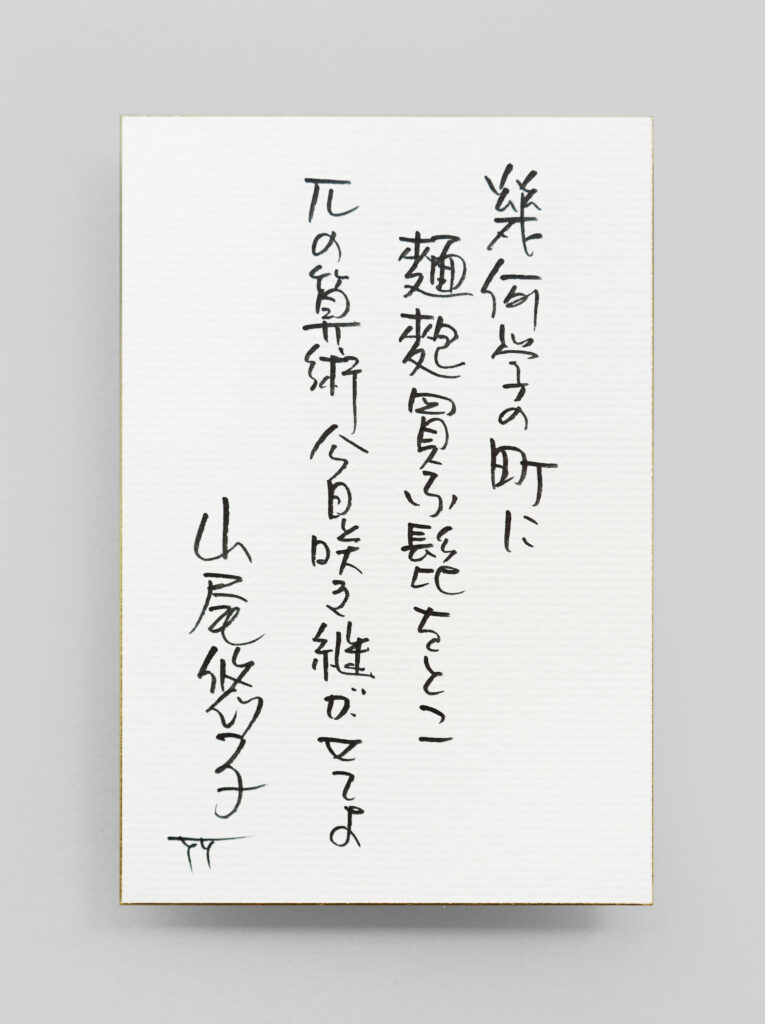 幾何学の町に
麵麭買ふ髭をとこ
πの算術今日咲き継がせてよ
山尾悠子
YY